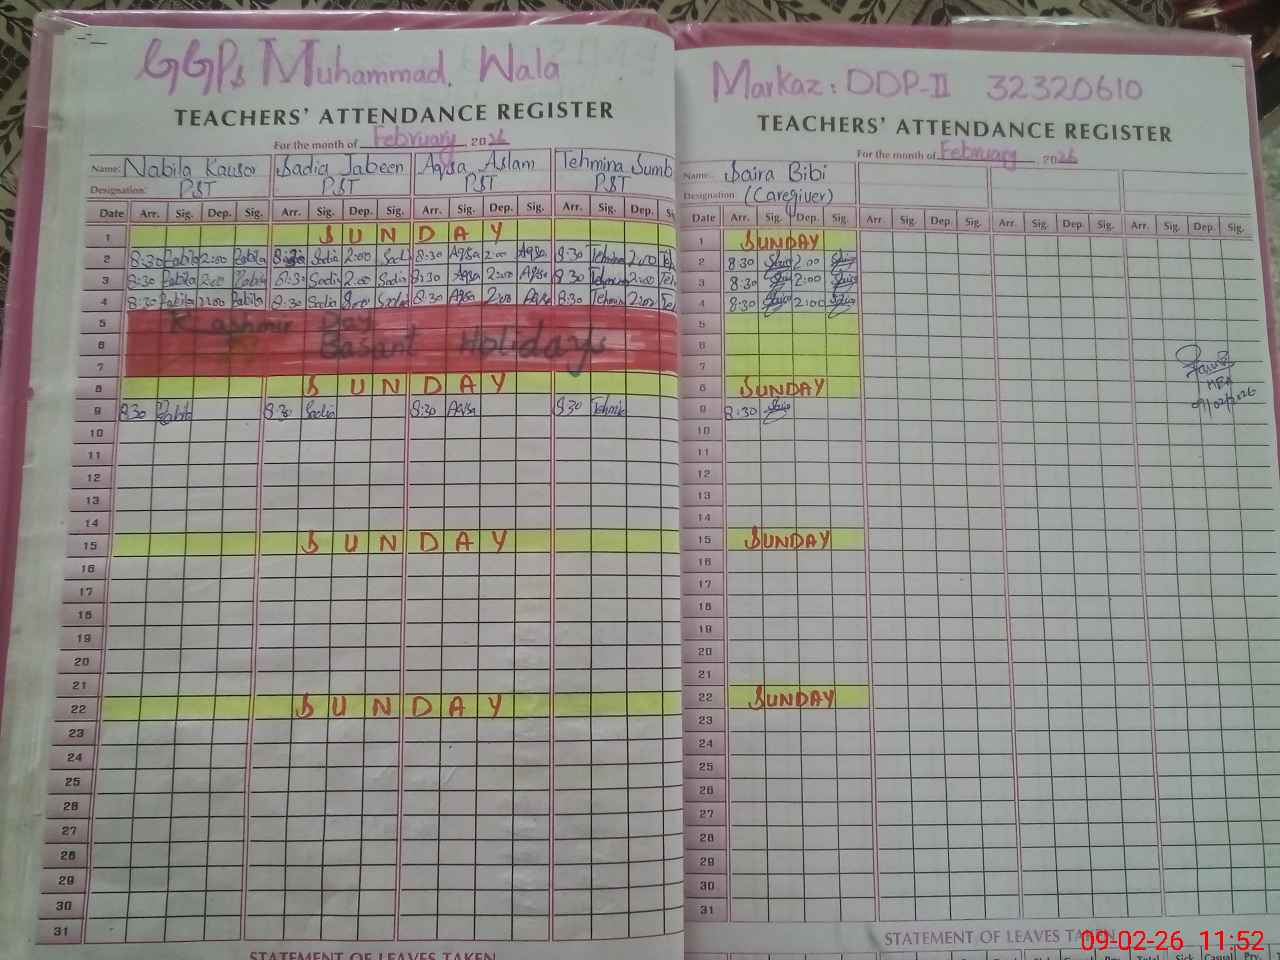 GGPs Muhammad Wala
TEACHERS' ATTENDANCE REGISTER
For the month of February 2026
Name: Nabila Kausar Sadia Jabeen Aqsa Aslam Tehmina Sumb
Designation: PST PST PST PST
Date Arr. Sig. Dep. Sig. Arr. Sig. Dep. Sig. Arr. Sig. Dep. Sig. Arr. Sig. Dep. Si
1 SUNDAY
2 8:30 Nabila 2:00 Nabila 8:30 Sadia 2:00 Sadi 8:30 Aqsa 2:00 Aqsa 8:30 Tehmina 2:00 Teh
3 8:30 Nabila 2:00 Nabila 8:30 Sadia 2:00 Sadia 8:30 Aqsa 2:00 Aqsa 8:30 Tehmina 2:00 Teh
4 8:30 Nabila 2:00 Nabila 8:30 Sadia 2:00 Sadia 8:30 Aqsa 2:00 Aqsa 8:30 Tehmin 2:00 Teh
5 Kashmir Day
6 Basant Holidays
7
8 SUNDAY
9 8:30 Nabila 8:30 Sadia 8:30 Aqsa 8:30 Tehmin
10
11
12
13
14
15 SUNDAY
16
17
18
19
20
21
22 SUNDAY
23
24
25
26
27
28
29
30
31
STATEMENT OF LEAVES TAKEN
Markaz: DDP-II 32320610
TEACHERS' ATTENDANCE REGISTER
For the month of February 2026
Name: Saira Bibi
Designation (Caregiver)
Date Arr. Sig. Dep. Sig. Arr. Sig. Dep. Sig. Arr. Sig. Dep. Sig. Arr. Sig. Dep. Sig.
1 SUNDAY
2 8:30 2:00
3 8:30 2:00
4 8:30 2:00
5
6
7
8 SUNDAY
9 8:30
MEA
09/02/2026
10
11
12
13
14
15 SUNDAY
16
17
18
19
20
21
22 SUNDAY
23
24
25
26
27
28
29
30
31
STATEMENT OF LEAVES TAKEN
09-02-26 11:52